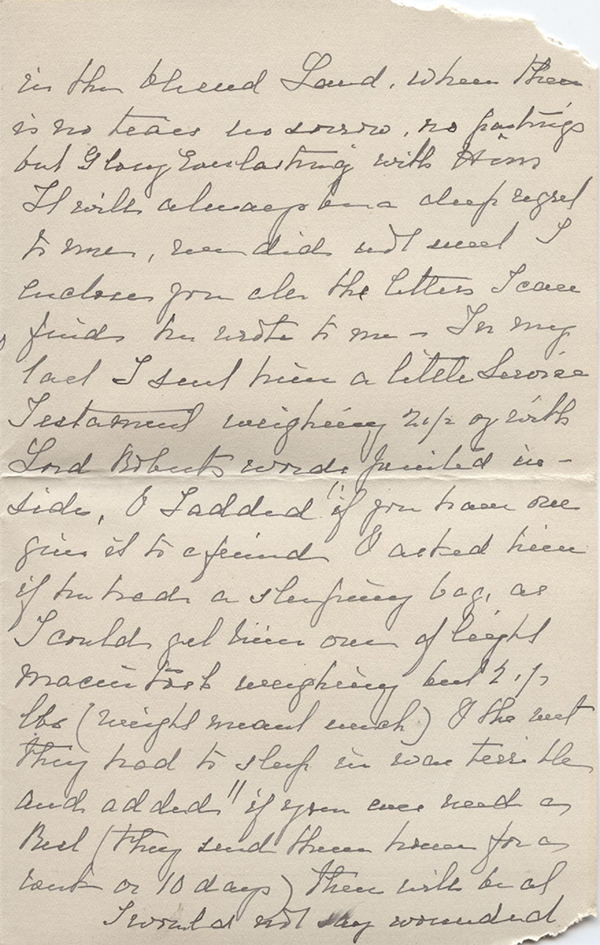 in the blessed Land, where there
is no tears no sorrow, no partings
but Glory Everlasting with Him
It will always be a deep regret
to me, we did not meet I
enclose you all the letters I can
find he wrote to me – In my
last I sent him a little Service
Testament weighing 2 1/2 oz with
Lord Roberts words printed in-
side, & I added "if you have one
give it to a friend & asked him
if he had a sleeping bag, as
I could get him one of light
macintosh weighing but 2 1/2
lbs (weight meant much) & the wet
they had to sleep in was terrible
and added "if you ever need a
Rest (they send them home for a
week or 10 days) there will be a
I would not say wounded